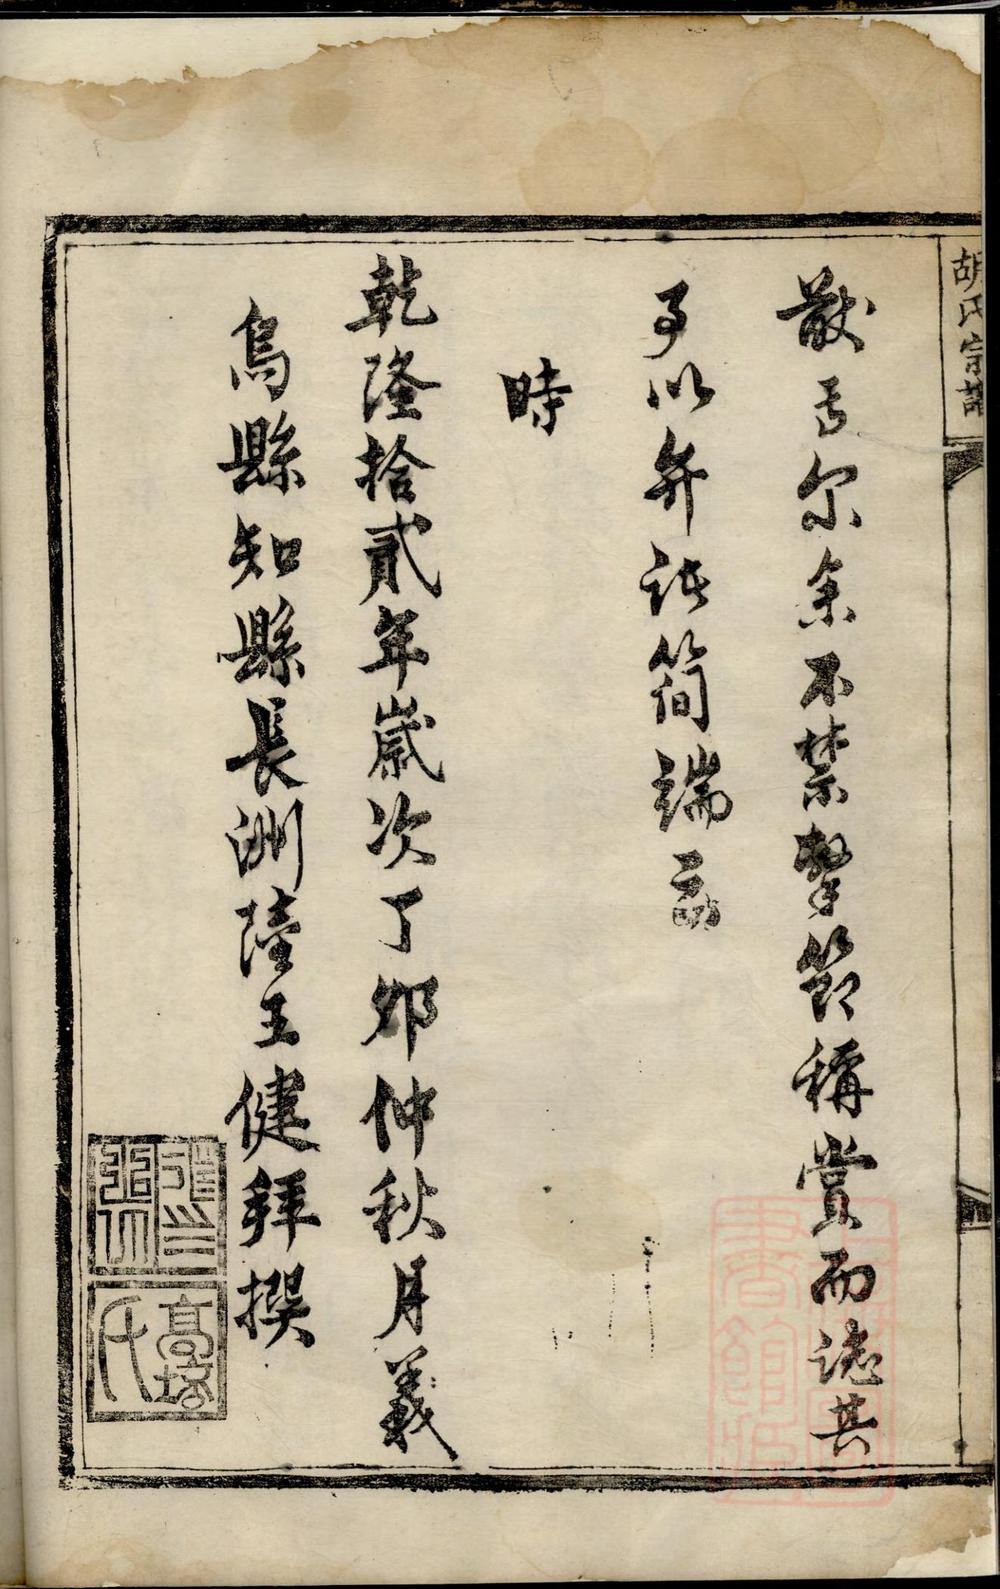 胡氏宗譜
猷云尔余不禁擊節稱賞而誌其
事以弁諸簡端云
時
乾隆拾貳年歲次丁卯仲秋月義
烏縣知縣長洲陸玉健拜撰